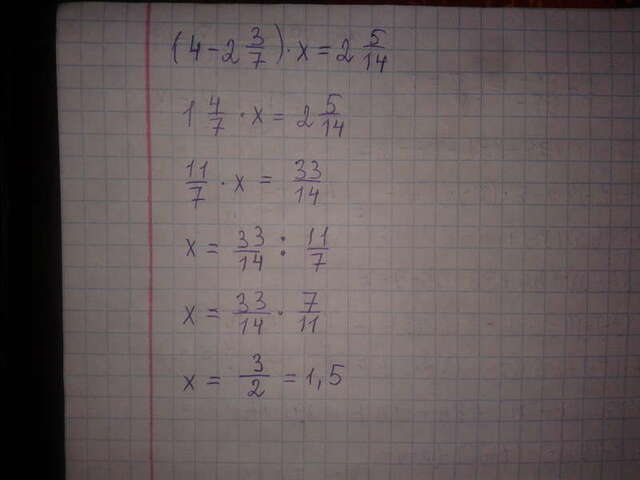 (4 - 2 3/7) · x = 2 5/14
1 4/7 · x = 2 5/14
11/7 · x = 33/14
x = 33/14 : 11/7
x = 33/14 · 7/11
x = 3/2 = 1,5